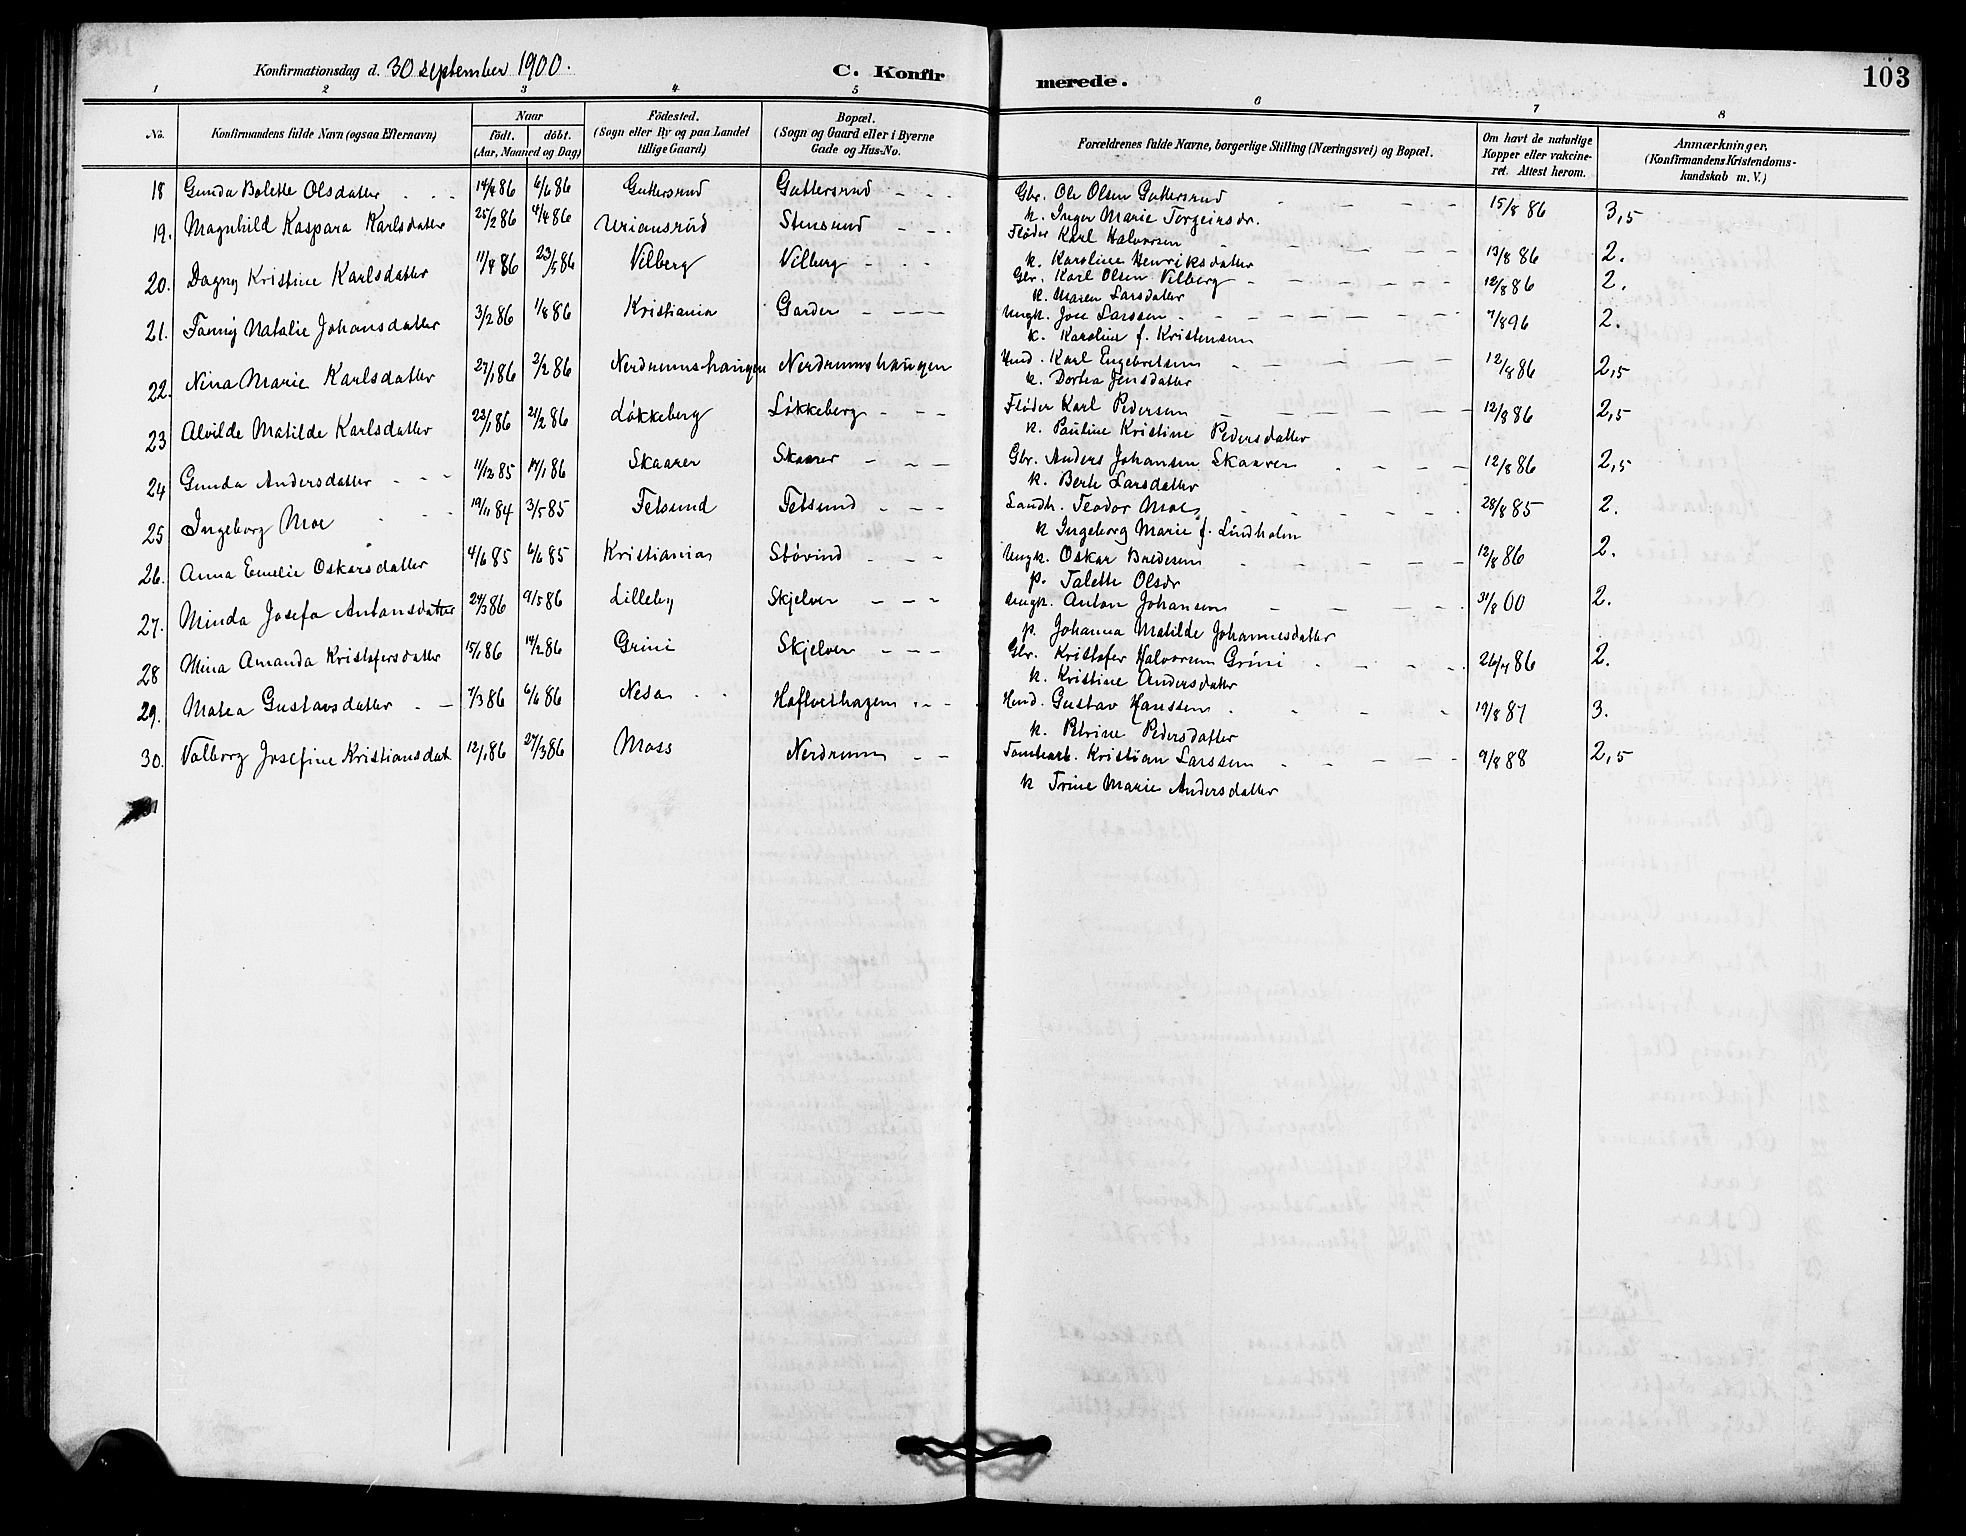 Konfirmationsdag d. 30 September 1900.
C. Konfirmerede.
103
1 2 3 4 5 6 7 8
No.
Konfirmandens fulde Navn (ogsaa Efternavn)
Naar
födt. döbt.
(Aar, Maaned og Dag)
Födested.
(Sogn eller By og paa Landet
tillige Gaard)
Bopæl.
(Sogn og Gaard eller i Byerne
Gade og Hus-No.
Forældrenes fulde Navne, borgerlige Stilling (Næringsvei) og Bopæl.
Om havt de naturlige
Kopper eller vakcine-
ret. Attest herom.
Anmærkninger.
(Konfirmandens Kristendoms-
kundskab m. V.)
18 Gunda Bolette Olsdatter 14/4 86 6/6 86 Guttersrud Guttersrud Gbr. Ole Olsen Guttersrud 15/8 86 3,5
k. Inger Marie Torgeirsdr.
19. Magnhild Kaspara Karlsdatter 25/2 86 4/4 86 Uriansrud Stensrud Fløder Karl Halvorsen 13/8 86 2.
k. Karoline Henriksdatter
20. Dagny Kristine Karlsdatter 11/4 86 23/5 86 Vilberg Vilberg Gbr. Karl Olsen Vilberg 12/8 86 2.
k. Maren Larsdatter
21. Fanny Natalie Johansdatter 3/2 86 1/8 86 Kristiania Garder Ungk. Joh Larssen 7/8 96 2.
k. Karoline f. Kristensen
22. Nina Marie Karlsdatter 27/1 86 2/2 86 Nerdrumshaugen Nerdrumshaugen Hmd. Karl Engebretsen 12/8 86 2,5
k. Dortea Jensdatter
23 Alvilde Matilde Karlsdatter 22/1 86 21/2 86 Løkkeberg Løkkeberg Fløder Karl Pedersen 12/8 86 2,5
k. Pauline Kristine Pedersdatter
24 Gunda Andersdatter 11/12 85 17/1 86 Skaarer Skaarer Gbr. Anders Johansen Skaarer 12/8 86 2,5
k. Berte Larsdatter
25 Ingeborg Moe 19/11 84 3/5 85 Fetsund Fetsund Landh. Teodor Moe 28/8 85 2.
k Ingeborg Marie f. Lindholm
26. Anna Emelie Oskarsdatter 4/6 85 6/6 85 Kristiania Støvind Ungk. Oskar Bredesen 12/8 86 2.
p. Talette Olsdr
27. Minda Josefa Antonsdatter 24/3 86 9/5 86 Lilleby Skjelver Ungk. Anton Johansen 31/8 00 2.
p. Johanna Matilde Johannesdatter
28 Mina Amanda Kristofersdatter 15/1 86 14/2 86 Grini Skjelver Gbr. Kristofer Halvorsen Grini 26/4 86 2.
k. Kristine Andersdatter
29. Matea Gustavsdatter 7/3 86 6/6 86 Nesa Haftvethagen Hmd. Gustav Hanssen 19/8 87 3.
k. Petrine Pedersdatter
30. Valborg Josefine Kristiansdat 12/1 86 27/3 86 Moss Nerdrum Tomtearb. Kristian Larssen 9/8 88 2,5
k Trine Marie Andersdatter